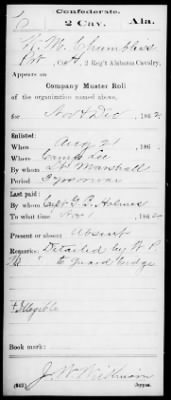 Confederate.
C 2 Cav. Ala.
W. M. Chumbless
Pvt, Co. H, 2 Reg't Alabama Cavalry.
Appears on
Company Muster Roll
of the organization named above,
for Nov & Dec, 186
Enlisted:
When Aug 21, 186
Where Camp Lee
By whom Marshall
Period 3 yrs or war
Last paid:
By whom Capt. G. B. Holmes
To what time Nov 1, 186
Present or absent Absent
Remarks: Detailed by
to guard bridge
Illegible
Book mark:
J. W.
(642) Copyist.